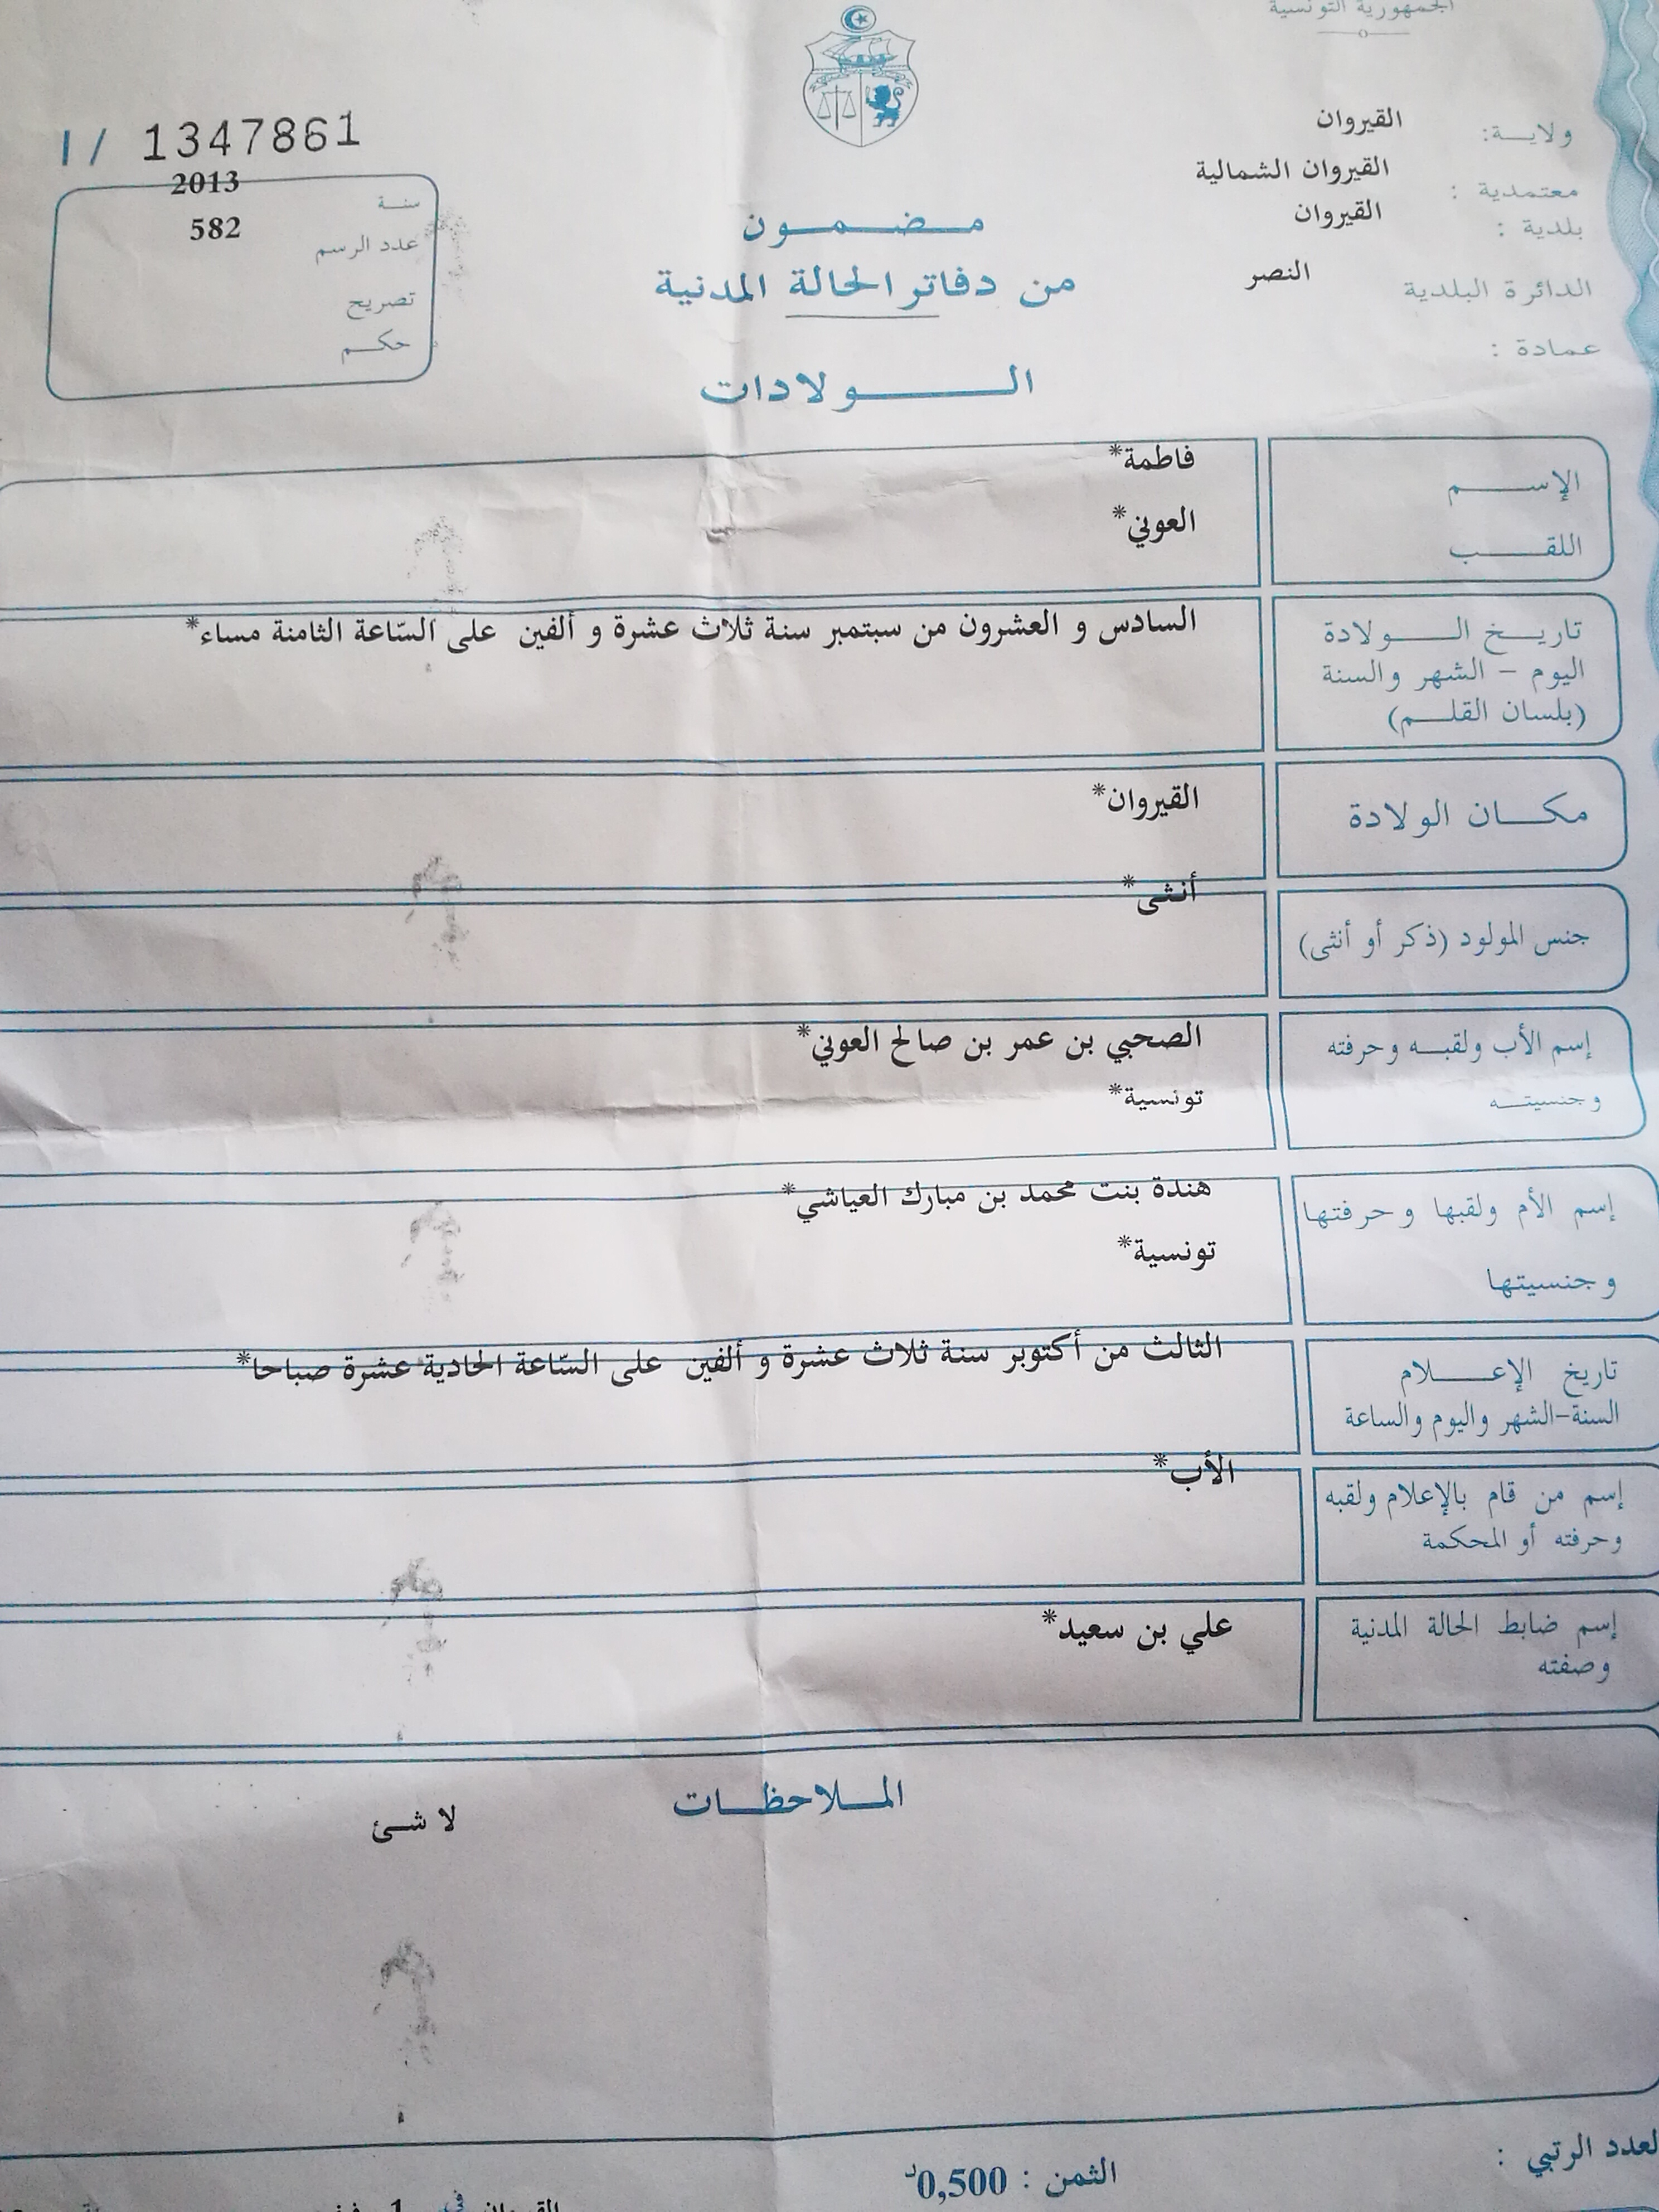 الجمهورية التونسية
ولاية: القيروان
معتمدية : القيروان الشمالية
بلدية : القيروان
الدائرة البلدية النصر
عمادة :
I / 1347861
سنة 2013
عدد الرسم 582
تصريح
حكم
مضمون
من دفاتر الحالة المدنية
الولادات
الإسم فاطمة*
اللقب العوني*
تاريخ الولادة السادس و العشرون من سبتمبر سنة ثلاث عشرة و ألفين على السّاعة الثامنة مساء*
اليوم - الشهر والسنة
(بلسان القلم)
مكان الولادة القيروان*
جنس المولود (ذكر أو أنثى) أنثى*
إسم الأب ولقبه وحرفته الصحبي بن عمر بن صالح العوني*
وجنسيته تونسية*
إسم الأم ولقبها وحرفتها هندة بنت محمد بن مبارك العياشي*
وجنسيتها تونسية*
تاريخ الإعلام الثالث من أكتوبر سنة ثلاث عشرة و ألفين على السّاعة الحادية عشرة صباحا*
السنة-الشهر واليوم والساعة
إسم من قام بالإعلام ولقبه الأب*
وحرفته أو المحكمة
إسم ضابط الحالة المدنية علي بن سعيد*
وصفته
الملاحظات
لا شئ
لعدد الرتبي :
الثمن : 0,500د